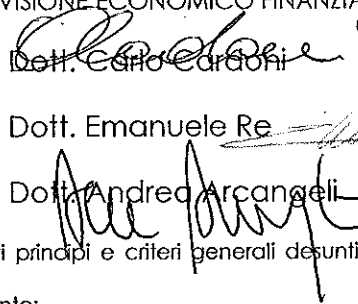 VISIONE ECONOMICO FINANZIA
Dott. Carlo Cardoni
Dott. Emanuele Re
Dott. Andrea Arcangeli
ri principi e criteri generali desunti